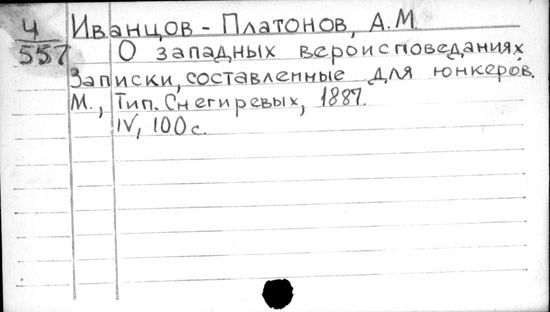 Ч
557
Иванцов - Платонов, А.М.
О западных вероисповеданиях
Записки, составленные для юнкеров.
М., Тип. Снегиревых, 1887.
IV, 100 с.